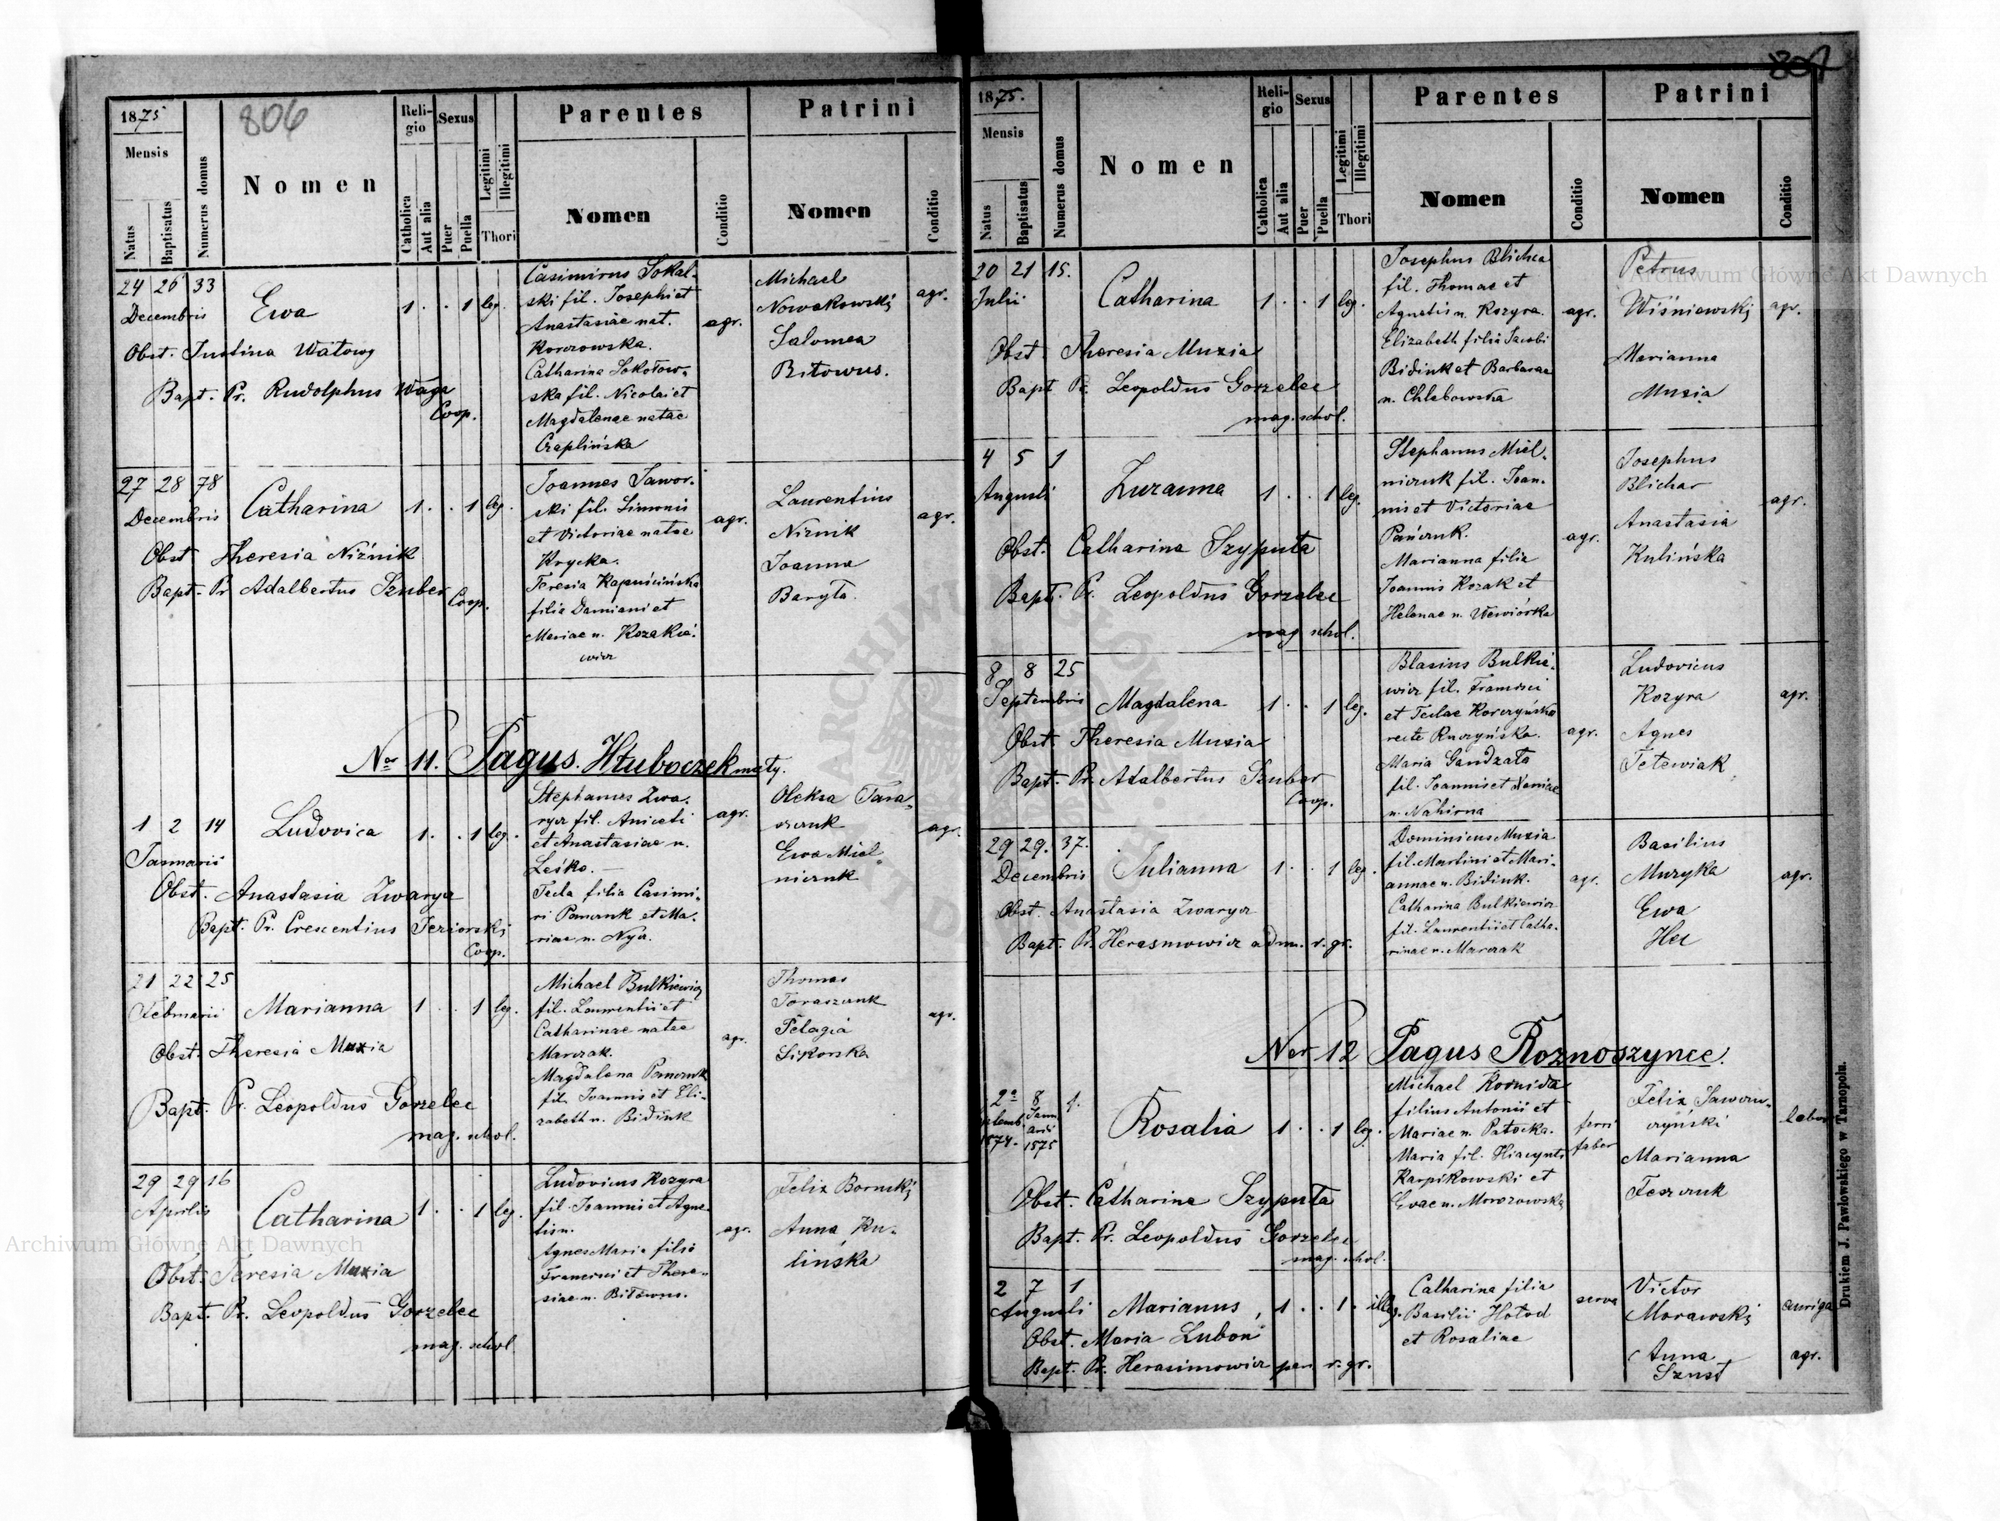 806
1875
Mensis
Natus
Baptisatus
Numerus domus
Nomen
Religio
Catholica
Aut alia
Sexus
Puer
Puella
Legitimi
Illegitimi
Thori
Parentes
Nomen
Conditio
Patrini
Nomen
Conditio
24 26 33
Decembris
Ewa
1 . . 1 leg.
Obst. Justina Watowy
Bapt. Pr. Rudolphus Waga
Coop.
Casimirus Sokal-
ski fil. Josephi et
Anastasiae nat.
Korczowska.
Catharina Sokołow-
ska fil. Nicolai et
Magdalenae natae
Czaplińska
agr.
Michael
Nowakowski
Salomea
Bitowus.
agr.
27 28 78
Decembris
Catharina
1 . . 1 leg.
Obst Theresia Niżnik
Bapt. Pr Adalbertus Szuber
Coop.
Joannes Jawor-
ski fil. Simonis
et Victoriae natae
Krycka.
Teresia Kapuścińska
filia Damiani et
Mariae n. Kozakie-
wicz
agr.
Laurentius
Niżnik
Joanna
Baryła.
agr.
Nro 11. Pagus. Hłuboczek mały.
1 2 14
Januarii
Ludovica
1 . . 1 leg.
Obst. Anastasia Zwarycz
Bapt. Pr. Crescentius Jeziorski
Coop.
Stephanus Zwa-
rycz fil. Aniceti
et Anastasiae n.
Leśko. —
Tecla filia Casimi-
ri Panczuk et Ma-
riae n. Nyà.
agr.
Oleksa Tara-
szczuk
Ewa Miel-
niczuk
agr.
21 22 25
Februarii
Marianna
1 . . 1 leg.
Obst. Theresia Muzia
Bapt. Pr. Leopoldus Gorzelec
mag. schol.
Michael Bulkiewicz
fil. Laurentii et
Catharinae natae
Marczak.
Magdalena Panczuk
fil. Joannis et Eli-
zabeth n. Bidiuk
agr.
Thomas
Taraszczuk
Pelagia
Sikorska
agr.
29 29 16
Aprilis
Catharina
1 . . 1 leg.
Obst. Teresia Muzia
Bapt. Pr. Leopoldus Gorzelec
mag. schol.
Ludovicus Kozyra
fil. Joannis et Agne-
tis n.
Agnes Maria filia
Francisci et There-
siae n. Bitowus.
agr.
Felix Bornski
Anna Ku-
lińska
807
1875.
Mensis
Natus
Baptisatus
Numerus domus
Nomen
Religio
Catholica
Aut alia
Sexus
Puer
Puella
Legitimi
Illegitimi
Thori
Parentes
Nomen
Conditio
Patrini
Nomen
Conditio
20 21 15.
Julii
Catharina
1 . . 1 leg.
Obst Theresia Muzia
Bapt Pr. Leopoldus Gorzelec
mag. schol.
Josephus Blicha
fil. Thomae et
Agnetis n. Kozyra.
Elizabeth filia Jacobi
Bidiuk et Barbarae
n. Chlebowska
agr.
Petrus
Wiśniewski
Marianna
Muzia
agr.
4 5 1
Augusti
Zuzanna
1 . . 1 leg.
Obst. Catharina Szyputa
Bapt. Pr. Leopoldus Gorzelec
mag. schol.
Stephanus Miel-
niczuk fil. Joan-
nis et Victoriae
Pańczuk.
Marianna filia
Joannis Kozak et
Helenae n. Wewiórka
agr.
Josephus
Blichar
Anastasia
Kulińska
agr.
8 8 25
Septembris
Magdalena
1 . . 1 leg.
Obst. Theresia Muzia
Bapt. Pr. Adalbertus Szuber
Coop.
Blasius Bulkie-
wicz fil. Francisci
et Teclae Korczyńska
recte Ruczyńska.
Maria Gandzała
fil. Joannis et Xeniae
n. Nahirna
agr.
Ludovicus
Kozyra
Agnes
Tetewiak
agr.
29 29. 37.
Decembris
Julianna
1 . . 1 leg.
Obst. Anastasia Zwarycz
Bapt. Pr. Herasmowicz adm. r. gr.
Dominicus Muzia
fil. Martini et Mari-
annae n. Bidiuk.
Catharina Bulkiewicz
fil. Laurentii et Catha-
rinae n. Marczak
agr.
Basilius
Muzyka
Ewa
Hec
agr.
Nro 12 Pagus Roznoszynce.
2a 8 4.
Septemb. Janu
1874. arii
1875
Rosalia
1 . . 1 leg.
Obst. Catharina Szyputa
Bapt. Pr. Leopoldus Gorzelec
mag. schol.
Michael Kornida
filius Antonii et
Mariae n. Patocka.
Maria fil. Hiacynti
Karpikowski et
Evae n. Morozowska
ferri
faber
Felix Jawor-
czyński
Marianna
Feszczuk
labor
2 7 1
Augusti
Marianus
1 . . 1 . illeg.
Obst. Maria Luboń
Bapt. Pr. Herasimowicz par. r. gr.
Catharina filia
Basilii Hołod
et Rosaliae
serva
Victor
Morawski
auriga
Anna
Szust
agr.
Drukiem J. Pawłowskiego w Tarnopolu.
Archiwum Główne Akt Dawnych
Archiwum Główne Akt Dawnych